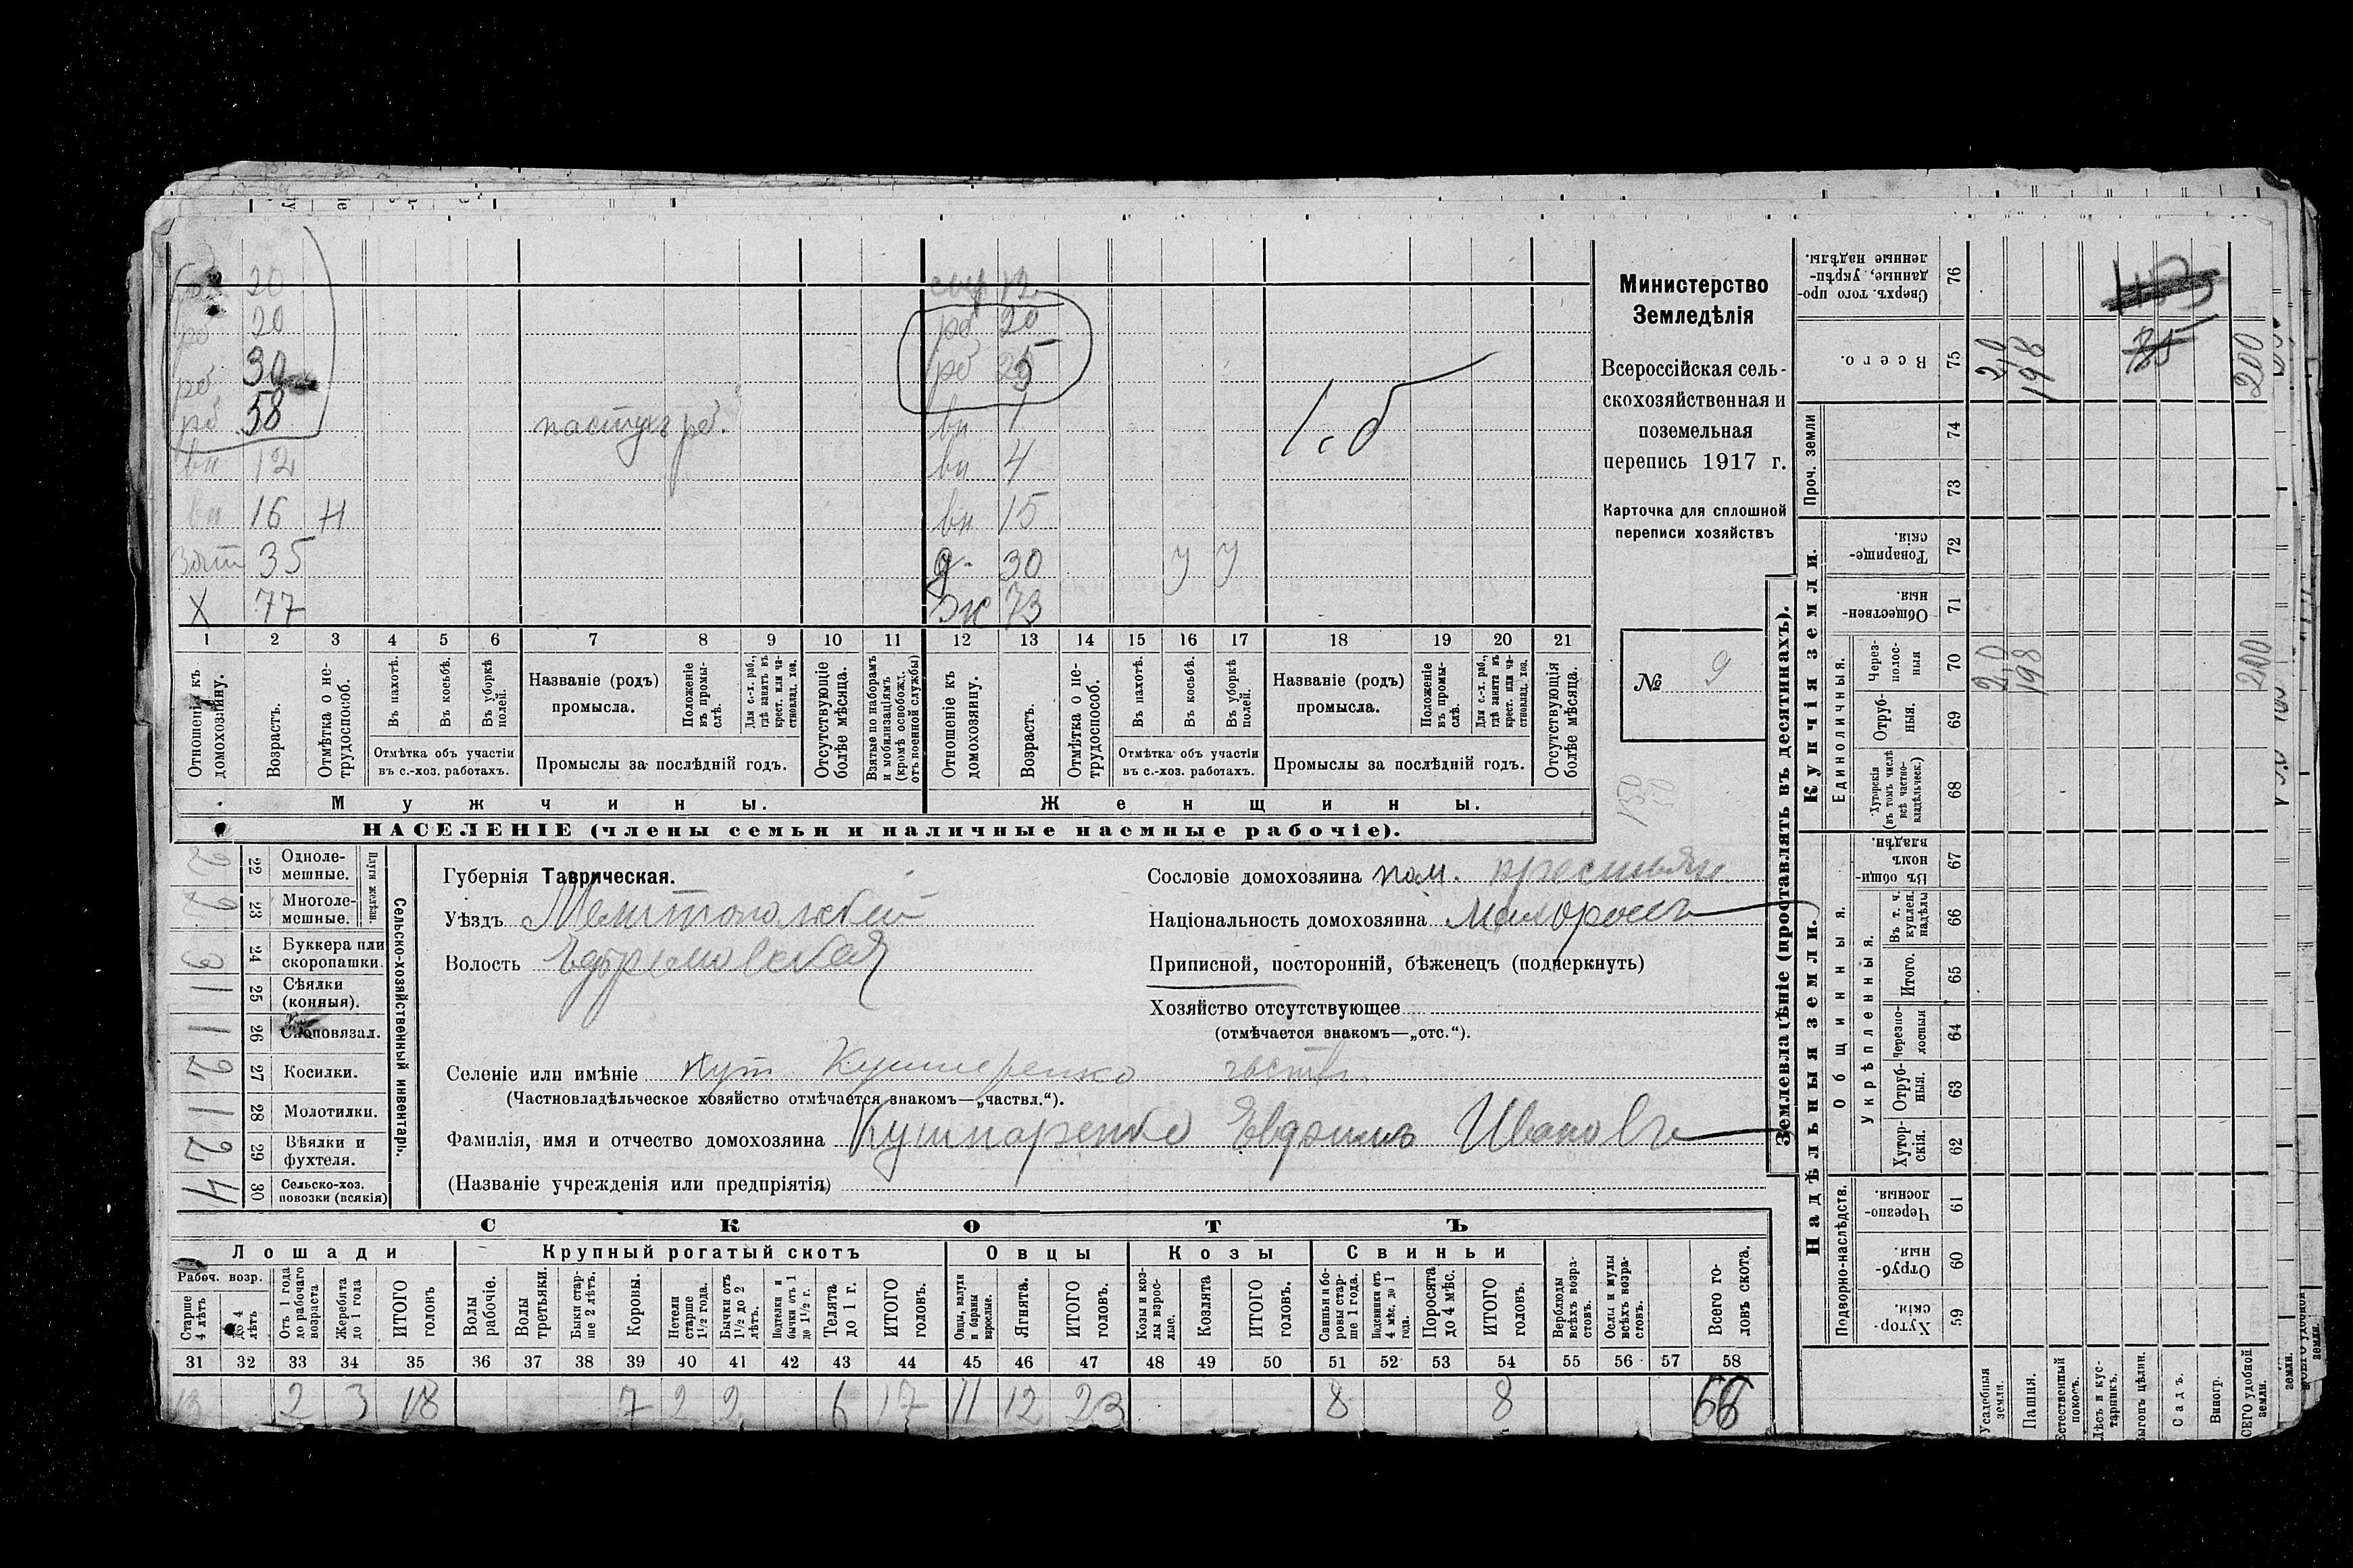 20 сно. 12
рб 20 рб 20
рб 30 рб 25
рб 58 пастухъ рб. вн 1
вн 12 вн 4
вн 16 Н вн 15
Зят 35 д. 30 У У
Х 77 Ж 73
1 2 3 4 5 6 7 8 9 10 11 12 13 14 15 16 17 18 19 20 21
Отношеніе къ домохозяину.
Возрастъ.
Отмѣтка о нетрудоспособ.
Въ пахотѣ.
Въ косьбѣ.
Въ уборкѣ полей.
Отмѣтка объ участіи
въ с.-хоз. работахъ.
Названіе (родъ)
промысла.
Положеніе въ промыслѣ.
Для с.-х. раб., гдѣ занятъ въ крест. или частновлад. хоз.
Промыслы за послѣдній годъ.
Отсутствующіе болѣе мѣсяца.
Взятые по наборамъ и мобилизаціямъ (кромѣ освобожд. отъ военной службы)
Отношеніе къ домохозяину.
Возрастъ.
Отмѣтка о нетрудоспособ.
Въ пахотѣ.
Въ косьбѣ.
Въ уборкѣ полей.
Отмѣтка объ участіи
въ с.-хоз. работахъ.
Названіе (родъ)
промысла.
Положеніе въ промыслѣ.
Для с.-х. раб., гдѣ занята въ крест. или частновлад. хоз.
Промыслы за послѣдній годъ.
Отсутствующія болѣе мѣсяца.
Мужчины. Женщины.
НАСЕЛЕНІЕ (члены семьи и наличные наемные рабочіе).
Министерство
Земледѣлія
Всероссійская сель-
скохозяйственная и
поземельная
перепись 1917 г.
Карточка для сплошной
переписи хозяйствъ
№ 9
Сельско-хозяйственный инвентарь.
Плуги желѣзн.
22 Одноле-
мешные. 2
23 Многоле-
мешные. 2
24 Буккера или
скоропашки. 3
25 Сѣялки
(конныя). 1
26 Сноповязал. 1
27 Косилки. 2
28 Молотилки. 1
29 Вѣялки и
фухтеля. 2
30 Сельско-хоз.
повозки (всякія) 4
Губернія Таврическая.
Уѣздъ Мелитопольскій
Волость Ефремовская
Селеніе или имѣніе хут Кушнеренко частв.
(Частновладѣльческое хозяйство отмѣчается знакомъ—„частвл.“).
Фамилія, имя и отчество домохозяина Кушнаренко Евдокимъ Ивановъ
(Названіе учрежденія или предпріятія)
Сословіе домохозяина крестьян.
Національность домохозяина Малороссъ
Приписной, посторонній, бѣженецъ (подчеркнуть)
Хозяйство отсутствующее
(отмѣчается знакомъ—„отс.“).
СКОТЪ
Лошади Крупный рогатый скотъ Овцы Козы Свиньи
Рабоч. возр.
Старше 4 лѣтъ
до 4 лѣтъ
Отъ 1 года до рабочаго возраста
Жеребята до 1 года
ИТОГО головъ
Волы рабочіе.
Волы третьяки.
Быки старше 2 лѣтъ.
Коровы.
Нетели старше 1½ года.
Бычки отъ 1½ до 2 лѣтъ.
Подтелки и бычки отъ 1 до 1½ г.
Телята до 1 г.
ИТОГО головъ.
Овцы, валухи и бараны взрослые.
Ягнята.
ИТОГО головъ.
Козы и козлы взрослые.
Козлята
ИТОГО головъ.
Свиньи и боровы старше 1 года.
Подсвинки отъ 4 мѣс. до 1 года.
Поросята до 4 мѣс.
ИТОГО головъ.
Верблюды всѣхъ возрастовъ.
Ослы и мулы всѣхъ возрастовъ.
Всего головъ скота.
31 32 33 34 35 36 37 38 39 40 41 42 43 44 45 46 47 48 49 50 51 52 53 54 55 56 57 58
13 2 3 18 7 2 2 6 17 11 12 23 8 8 66
Землевладѣніе (проставлять въ десятинахъ).
Надѣльныя земли. Купчія земли. Проч. земли
Подворно-наслѣдств. Общинныя. Единоличныя.
Укрѣпленныя.
Хуторскія. 59
Отрубныя. 60
Черезполосныя. 61
Хуторскія. 62
Отрубныя. 63
Черезполосныя 64
Итого. 65
Въ т. ч. куплен. надѣлы 66
Въ общинномъ владѣн. 67
Хуторскія (въ томъ числѣ всѣ частновладѣльческ.) 68
Отрубныя. 69
Черезполосныя 70
Общественныя 71
Товарищескія. 72
73
74
Всего. 75
Сверхъ того проданные, укрѣпленные надѣлы. 76
Усадебныя земли. 2,0 2,0
Пашня. 198 198
Естественный покосъ.
Лѣсъ и кустарникъ.
Выгонъ цѣлин.
Садъ.
Виногр.
ВСЕГО удобной земли. 200 200